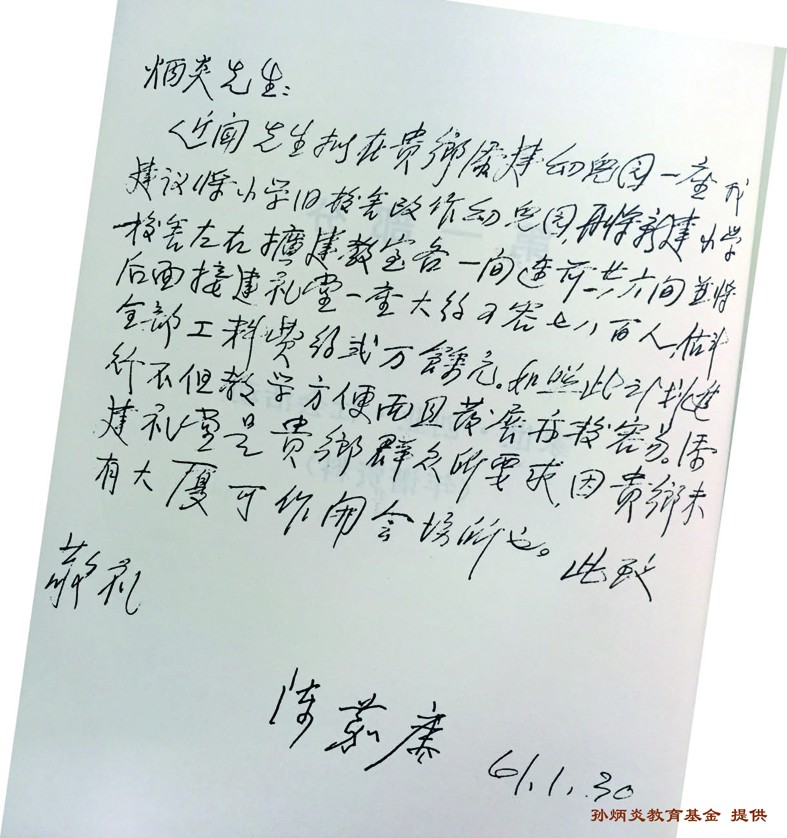 炳炎先生：
近闻先生拟在貴鄉添建幼兒园一座 我
建议将小学旧校舍改作幼兒园，再将新建小学
校舍左右擴建教室各一间連前共六间並将
后面接建礼堂一座大约可容七八百人，估计
全部工料费约贰万餘元。如照此计划進
行不但教学方便而且发展亦较容易。添
建礼堂是貴鄉群众所要求，因貴鄉未
有大厦可作開会場所也。此致
敬礼
陳 康
61.1.30
孙炳炎教育基金 提供